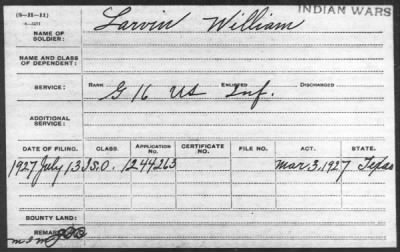 INDIAN WARS
(8-21-11)
NAME OF SOLDIER: Larvin William
NAME AND CLASS OF DEPENDENT:
SERVICE: RANK ENLISTED DISCHARGED
G 16 US Inf.
ADDITIONAL SERVICE:
DATE OF FILING. CLASS. APPLICATION No. CERTIFICATE NO. FILE NO. ACT. STATE.
1927 July 13 I.S.O. 1244263 Mar 3, 1927 Texas
BOUNTY LAND:
REMARKS